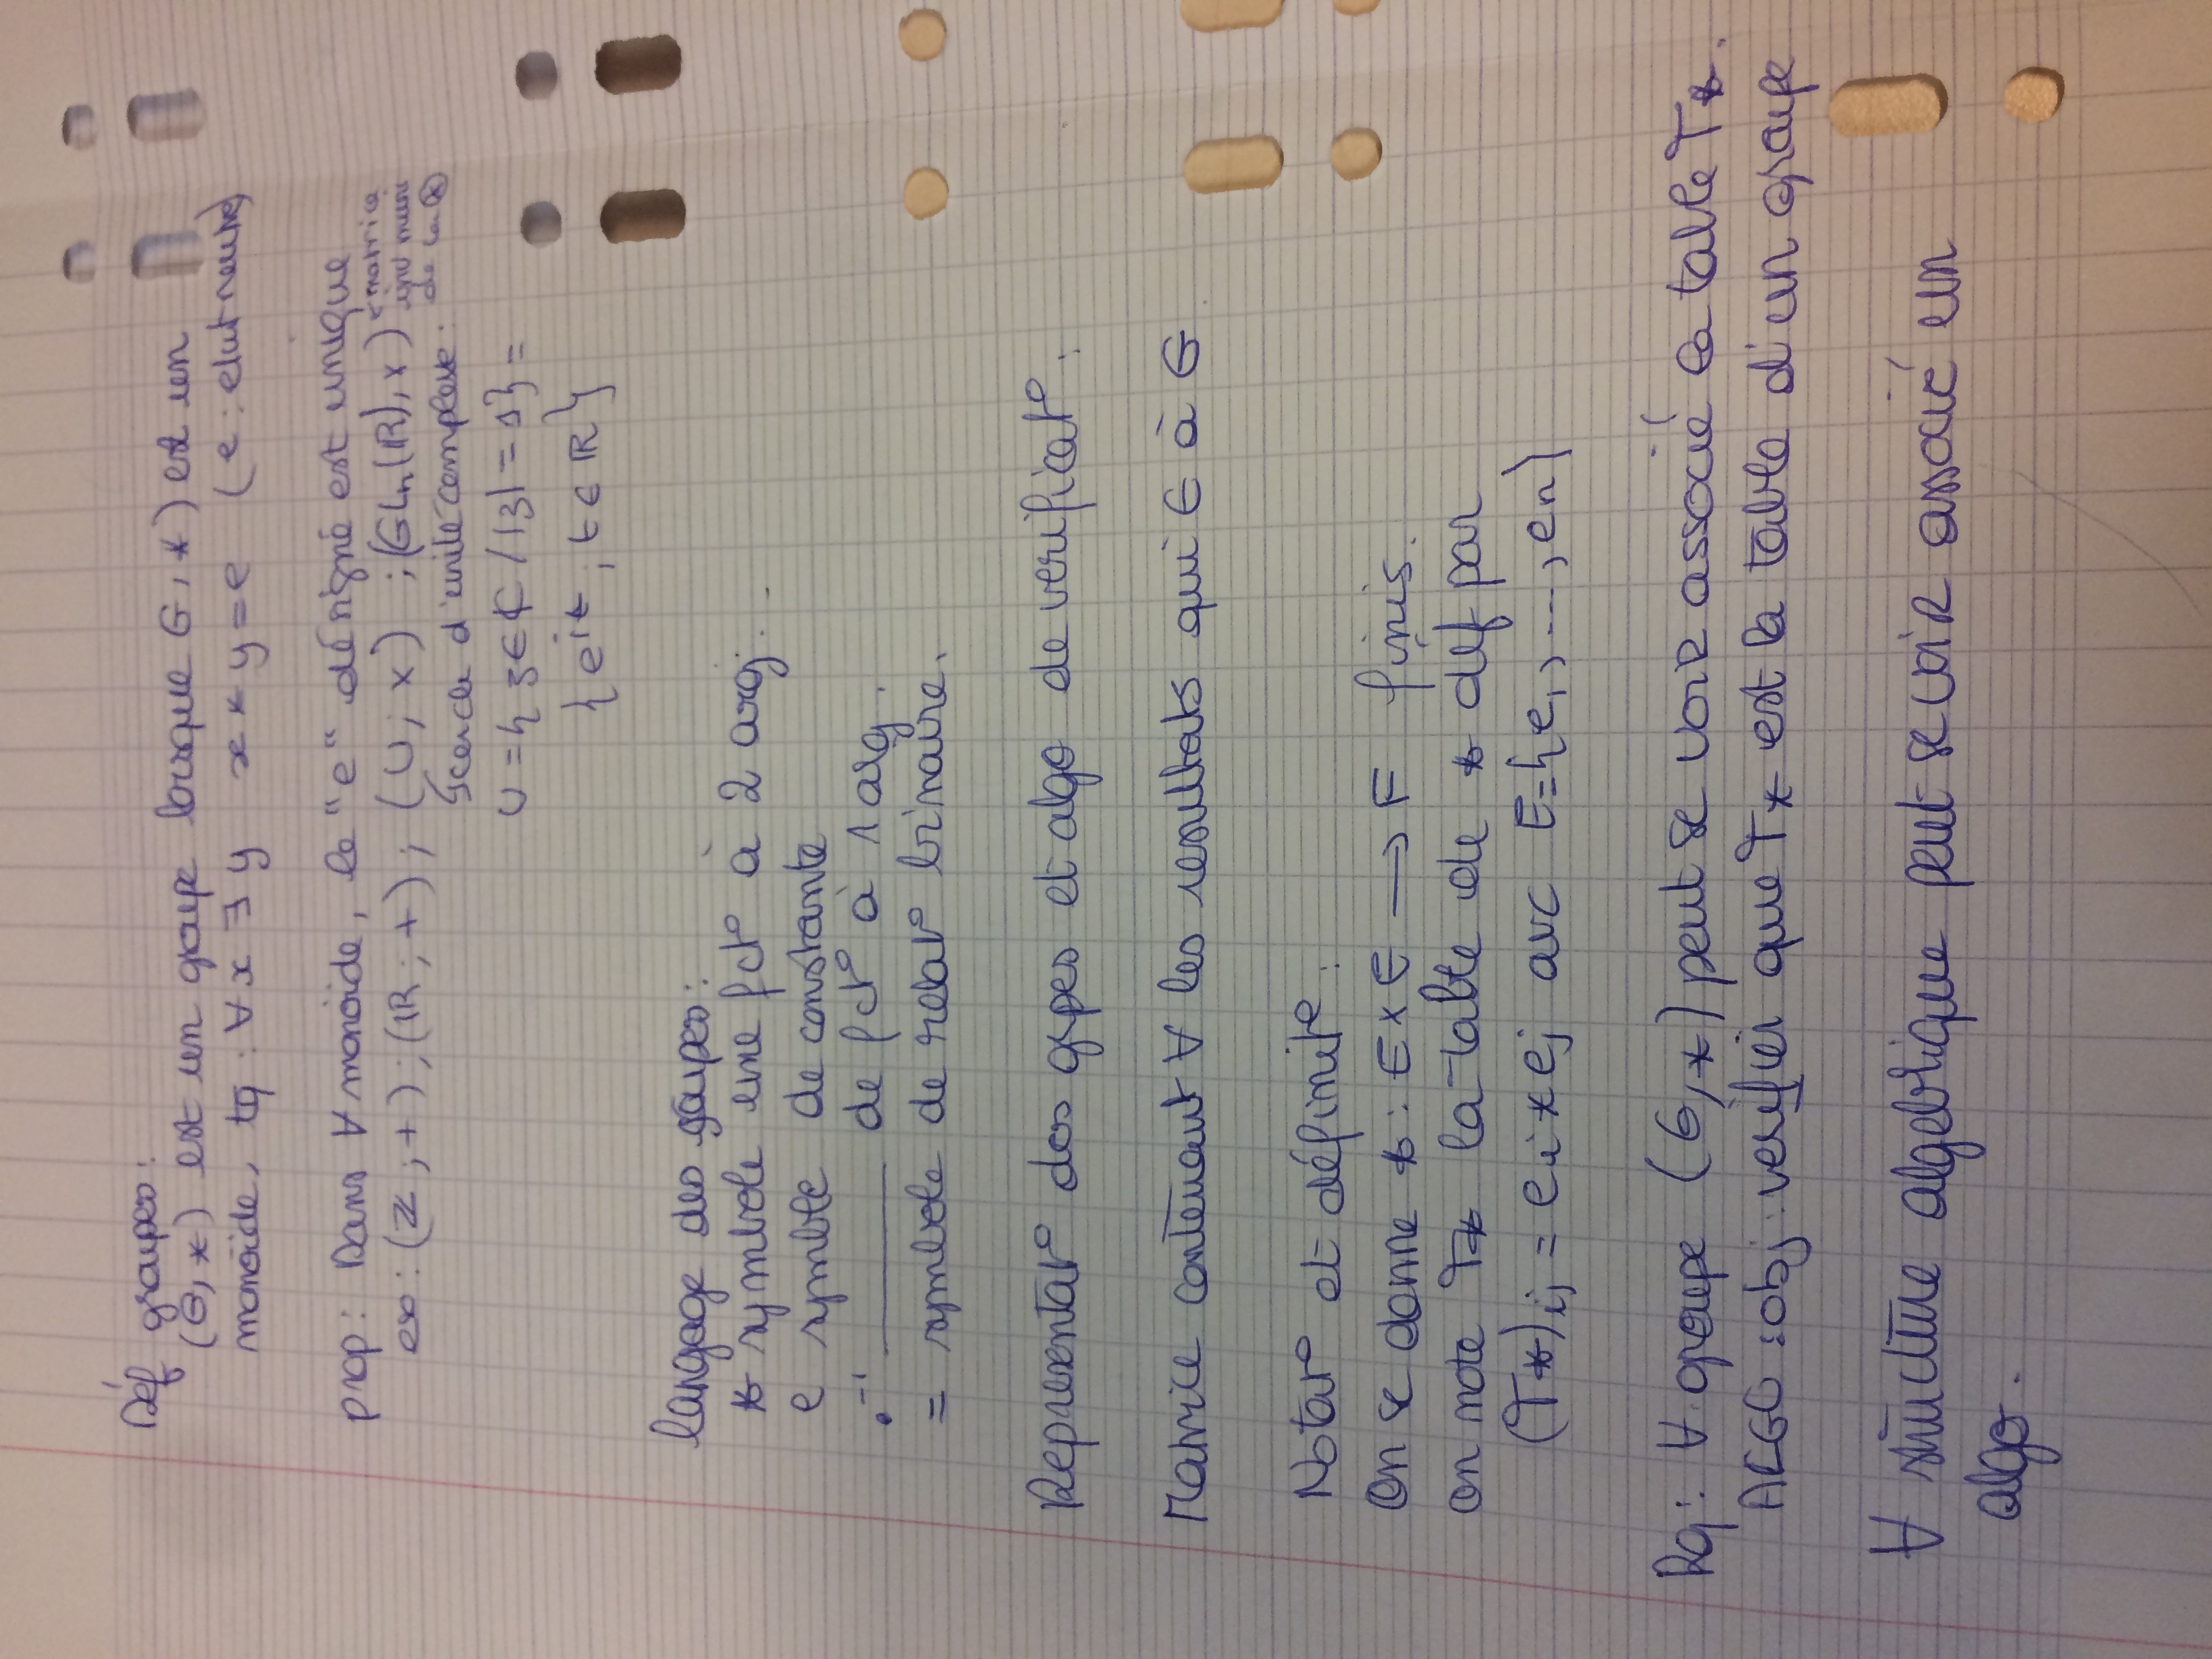 Déf groupes :
(G, *) est un groupe lorsque G, *) est un
monoïde, tq : ∀ x ∃ y x * y = e (e : elut neutre)
prop : Dans ∀ monoïde, le "e" désigné est unique
ex : (ℤ ; +) ; (ℝ ; +) ; (U ; ×) ; (GLn(ℝ), ×) matrice
inv muni
de la ⊗
↳ cercle d'unité complexe.
U = { z ∈ ℂ / |z| = 1 } =
{ e^it ; t ∈ ℝ }
langage des goupes :
* symbole une fct° à 2 arg.
e symble de constante
.⁻¹ ______ de fct° à 1 arg.
= symbole de relat° binaire.
Representat° des grpes et algo de verificat° :
Matrice contenant ∀ les resultats qui ∈ à G
Notat° et définit° :
On se donne * : E × E → F finis.
on note T* la table de * déf par
(T*)ij = ei * ej avc E = {e1, ..., en}
Rq : ∀ groupe (G, *) peut se voir associé la table T*.
ALGO : obj : verifier que T* est la table d'un groupe
∀ structure algebrique peut se voir associé un
algo.